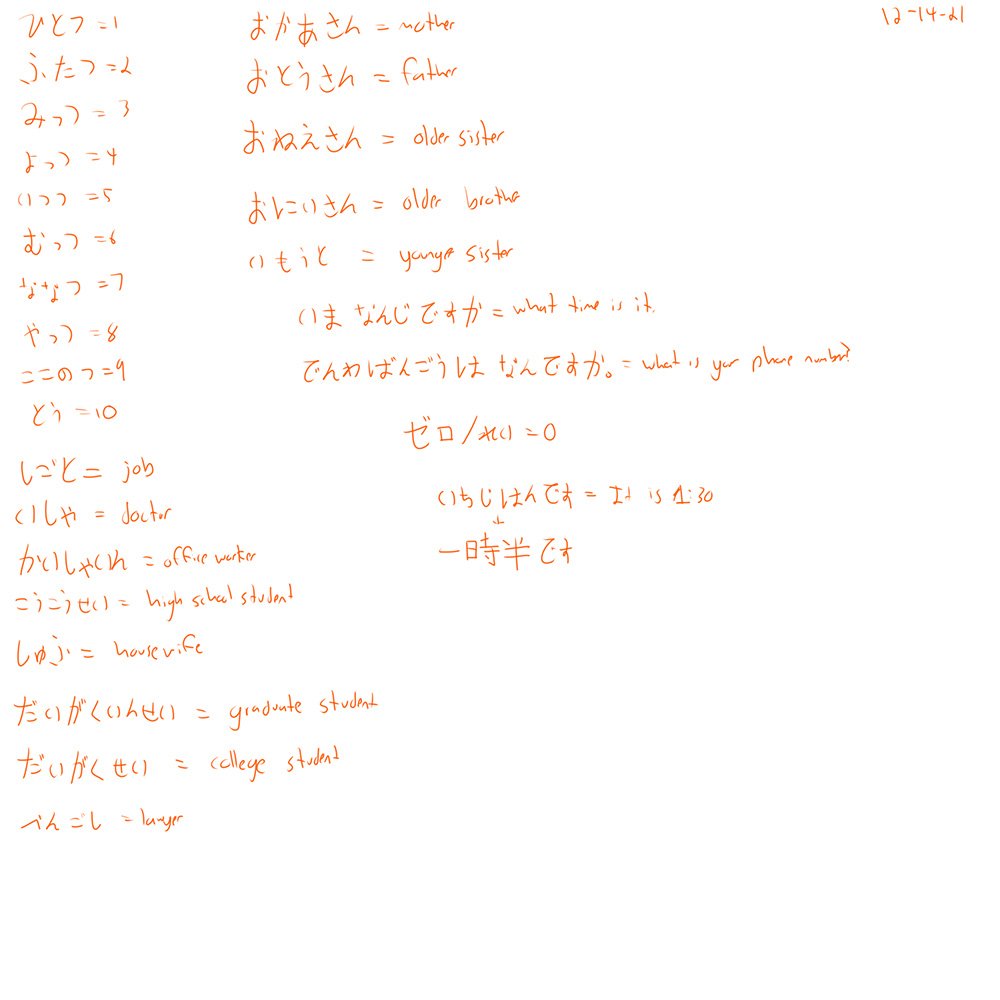 12-14-21
ひとつ=1
ふたつ=2
みっつ=3
よっつ=4
いつつ=5
むっつ=6
ななつ=7
やっつ=8
ここのつ=9
とう=10
しごと= job
いしゃ = doctor
かいしゃいん = office worker
こうこうせい= high school student
しゅふ= housewife
だいがくいんせい = graduate student
だいがくせい = college student
べんごし = lawyer
おかあさん = mother
おとうさん = father
おねえさん = older sister
おにいさん = older brother
いもうと = younger sister
いま なんじですか = what time is it.
でんわばんごうは なんですか。= what is your phone number?
ゼロ/れい=0
いちじはんです = It is 1:30
↓
一時半です